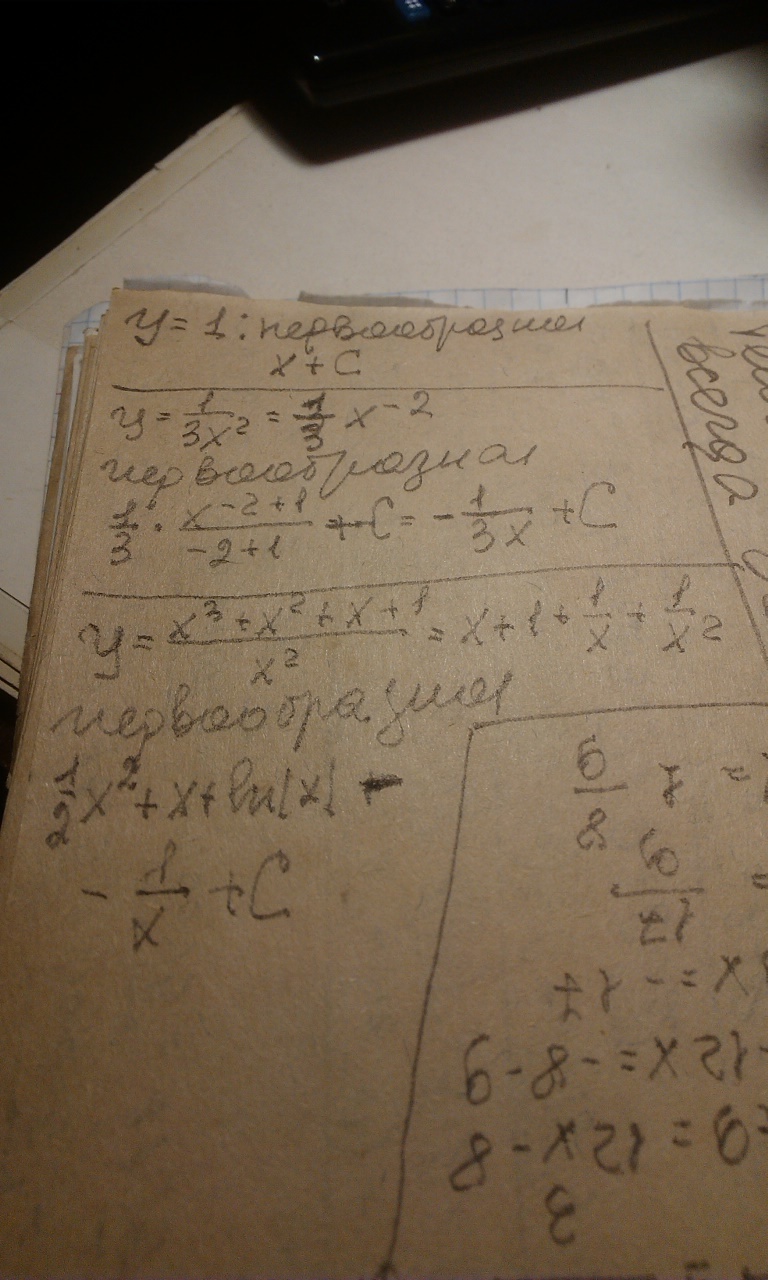 y = 1 : первообразная
x + C
y = 1/(3x²) = 1/3 x⁻²
первообразная
1/3 · x⁻²⁺¹/(-2+1) + C = - 1/(3x) + C
y = (x³ + x² + x + 1)/x² = x + 1 + 1/x + 1/x²
первообразная
1/2 x² + x + ln|x| -
- 1/x + C
всегда
12x = -8 - 9
= 12x - 8